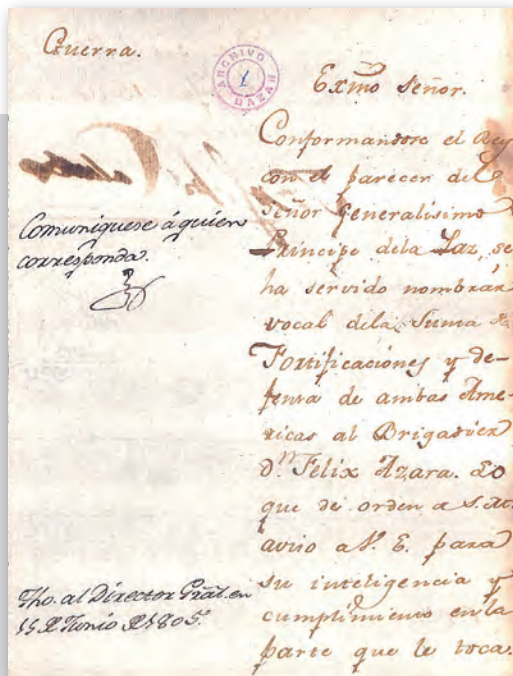 Guerra.
ARCHIVO
BAZAN
Exmo Señor.
Conformandose el Rey
con el parecer del
Señor Generalisimo
Principe dela Paz, se
ha servido nombrar
vocal dela Junta de
Fortificaciones y de-
fensa de ambas Ame-
ricas al Brigadier
Dn Felix Azara. Lo
que de orden de S. M.
aviso a V. E. para
su inteligencia y
cumplimiento en la
parte que le toca.
Comuniquese á quien
corresponda.
Fho. al Director Gral. en
de Junio de 1805.